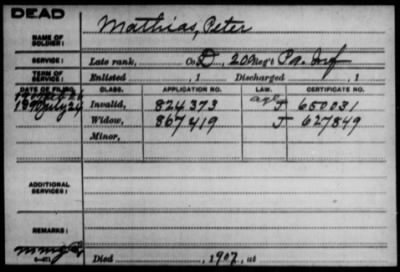 DEAD
Mathias, Peter
NAME OF SOLDIER:
SERVICE: Late rank, Co. D, 200 Reg't Pa. Inf
TERM OF SERVICE: Enlisted , 1 Discharged , 1
DATE OF FILING. CLASS. APPLICATION NO. LAW. CERTIFICATE NO.
Invalid, 824373 J 650031
July 24 Widow, 867419 J 627849
Minor,
ADDITIONAL SERVICES:
REMARKS:
Died , 1907, at